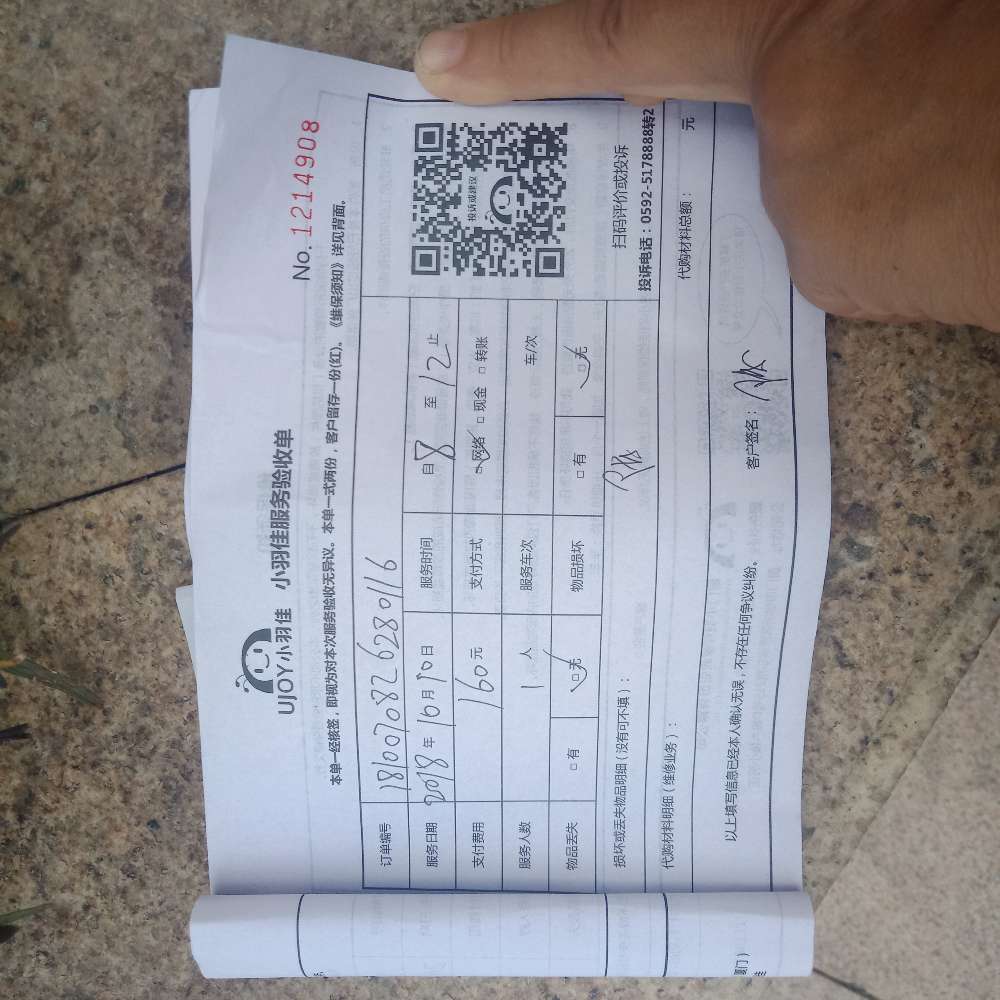 No. 1214908
UJOY小羽佳 小羽佳服务验收单
本单一经核签，即视为对本次服务验收无异议。本单一式两份，客户留存一份(红)。《维保须知》详见背面。
订单编号 1810070826280116
服务日期 2018年10月10日 服务时间 自8至12止
支付费用 160元 支付方式 □网络 □现金 □转账
服务人数 1人 服务车次 车/次
物品丢失 □有 □无 物品损坏 □有 □无
投诉或建议
扫码评价或投诉
投诉电话：0592-5178888转2
损坏或丢失物品明细（没有可不填）：
代购材料明细（维修业务）： 代购材料总额： 元
以上填写信息已经本人确认无误，不存在任何争议纠纷。 客户签名：